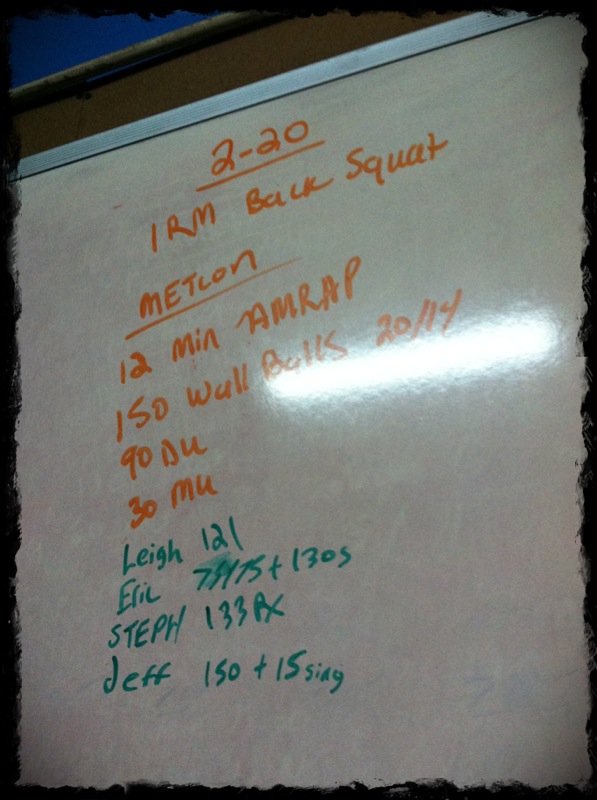 2-20
1RM Back Squat
METCON
12 Min AMRAP
150 Wall Balls 20/14
90 DU
30 MU
Leigh 121
Eric 75+130s
STEPH 133 RX
Jeff 150 + 15 sing